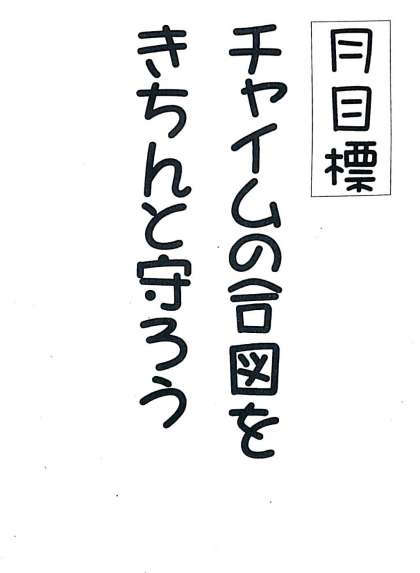 月目標
チャイムの合図を
きちんと守ろう